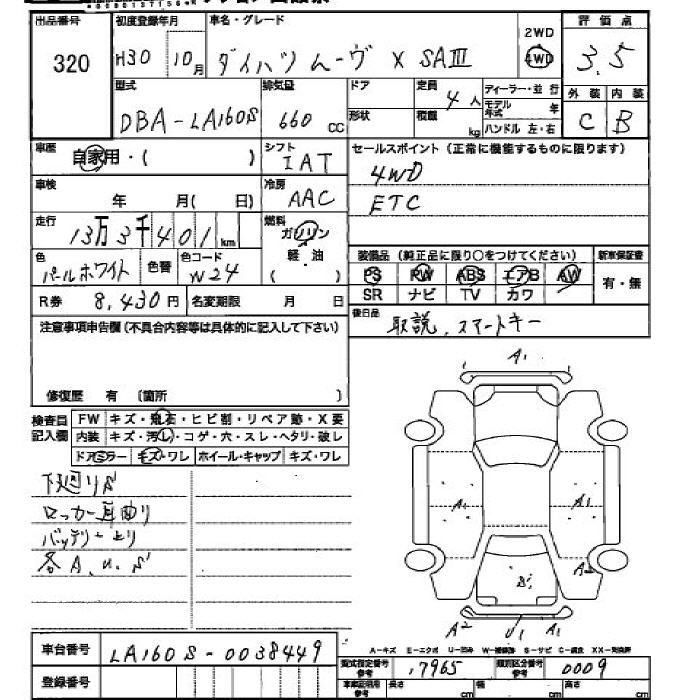 出品番号 初度登録年月 車名・グレード 2WD 評価点
320 H30 10月 ダイハツムーヴ X SAIII 4WD 3.5
型式 排気量 ドア 定員 ディーラー・並行 外装 内装
DBA-LA160S 660cc 形状 4人 積載 kg モデル年式 年 ハンドル 左・右 C B
車歴 自家用・( ) シフト IAT セールスポイント (正常に機能するものに限ります)
車検 年 月( 日) 冷房 AAC 4WD
ETC
走行 13万3千401km 燃料 ガソリン 軽・油 ( )
色 パールホワイト 色替 色コード W24
装備品 (純正品に限り○をつけてください) 新車保証書
PS PW ABS エアB AW 有・無
SR ナビ TV カワ
R券 8,430円 名変期限 月 日
後日品 取説、スマートキー
注意事項申告欄(不具合内容等は具体的に記入して下さい)
修復歴 有 〔箇所 〕
検査員記入欄 FW キズ・飛石・ヒビ割・リペア跡・X要
内装 キズ・汚レ・コゲ・穴・スレ・ヘタリ・破レ
ドアミラー キズ・ワレ ホイール・キャップ キズ・ワレ
下廻りS
ロッカー耳曲り
バッテリー上り
各A、U、S
A1
A1 A1
A2
S1
A2 U1 A1
A-キズ E-エクボ U-凹み W-補修跡 S-サビ C-腐食 XX-交換済
車台番号 LA160S-0038449
型式指定番号 参考 17965 類別区分番号 参考 0009
登録番号
車庫証明用 参考 長さ cm 幅 cm 高さ cm